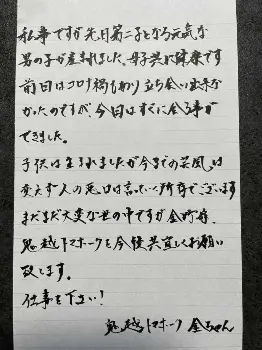 私事ですが先日第二子となる元気な
男の子が産まれました。母子共に健康です
前回はコロナ禍もあり立ち会い出来な
かったのですが、今回はすぐに会う事が
できました。
子供は生まれましたが今までの芸風は
変えず人の悪口は言っていく所存でございます
まだまだ大変な世の中ですが金野母、
鬼越トマホークを今後共宜しくお願い
致します。
仕事を下さい!
鬼越トマホーク 金ちゃん